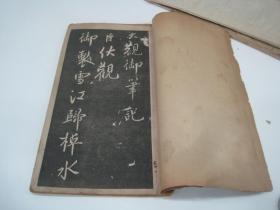 大觀御筆記
臣伏觀
御製雪江歸棹水